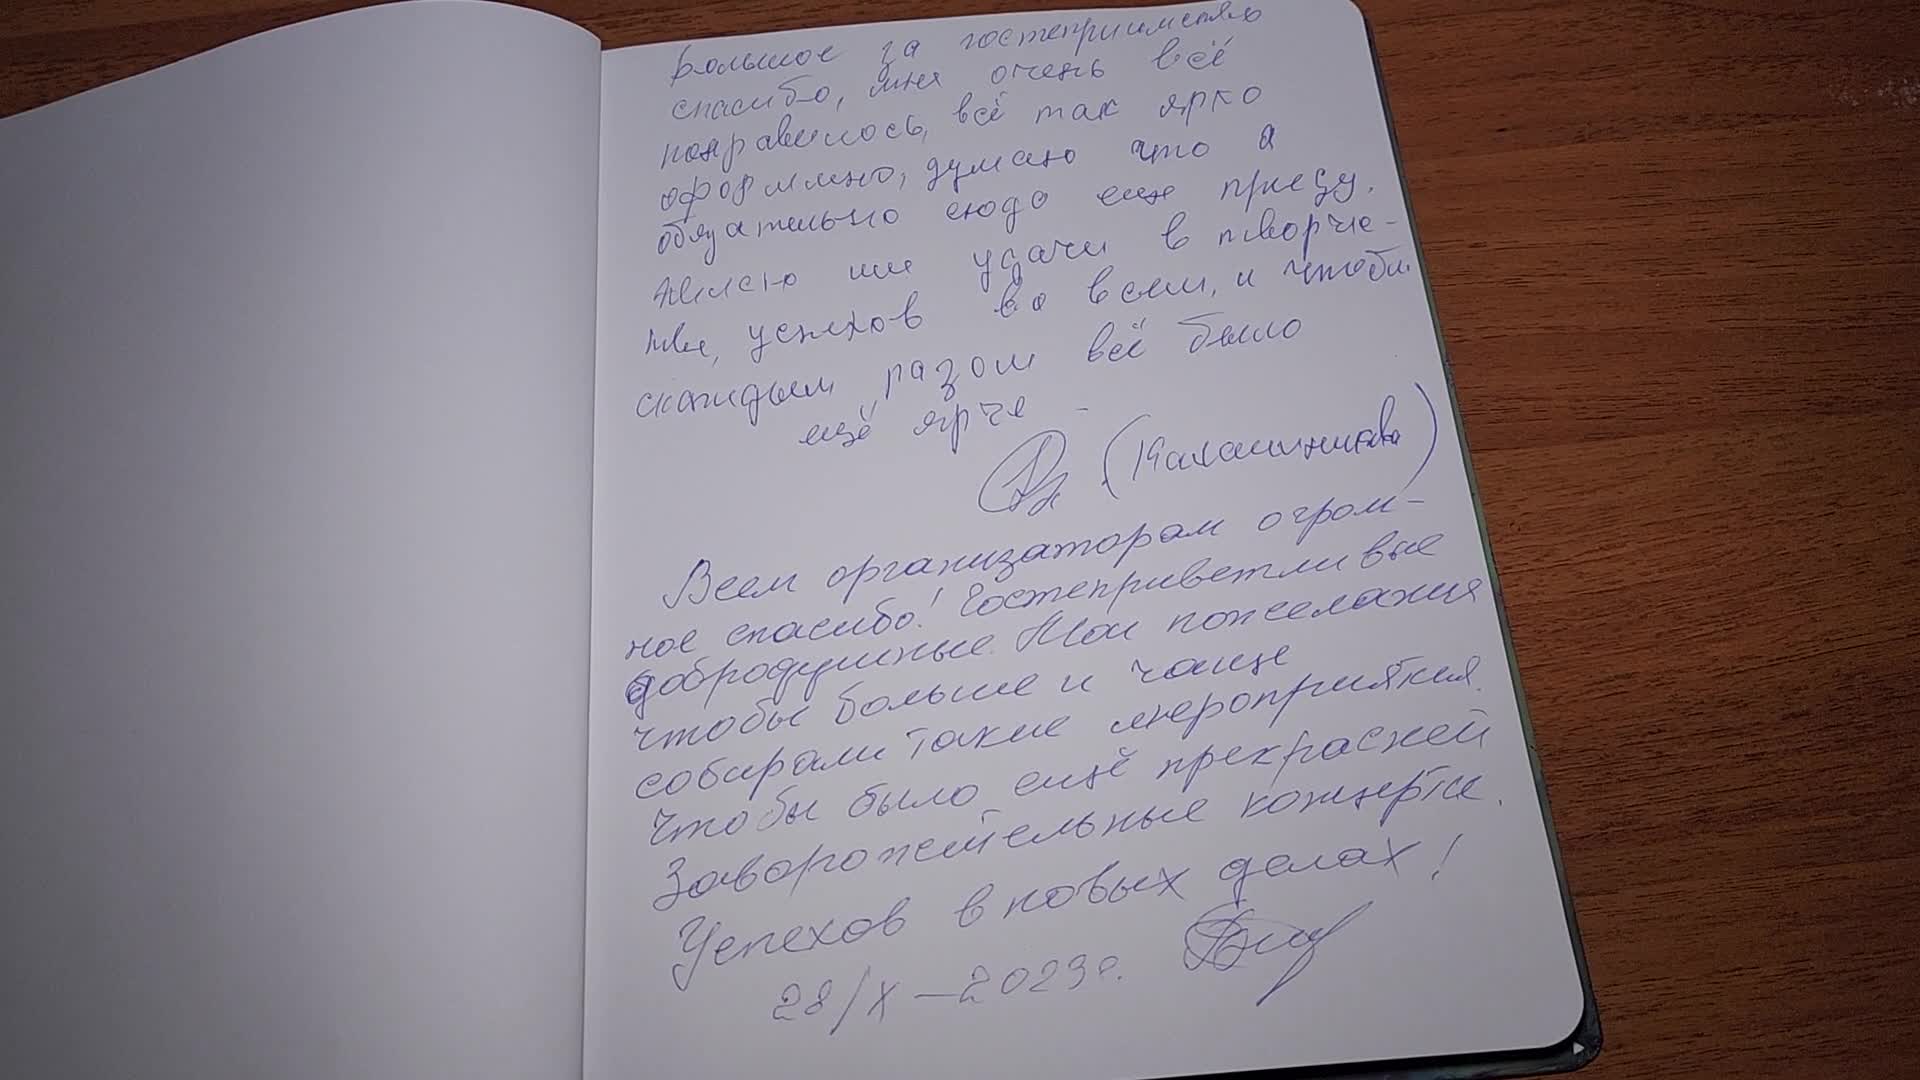 большое за гостеприимство
спасибо, мне очень всё
понравилось, всё так ярко
оформлено, думаю что я
обязательно сюда еще приеду.
Желаю им удачи в творче-
тве, успехов во всем, и чтобы
скаждым разом всё было
ещё ярче -
(Калашникова)
Всем организаторам огром-
ное спасибо! Гостеприветливые
добродушные. Мои пожелания
чтобы больше и чаще
собирали такие мероприятия.
Чтобы было ещё прекрасней
Заворожительные концерты.
Успехов в новых делах!
28/X-2023г.